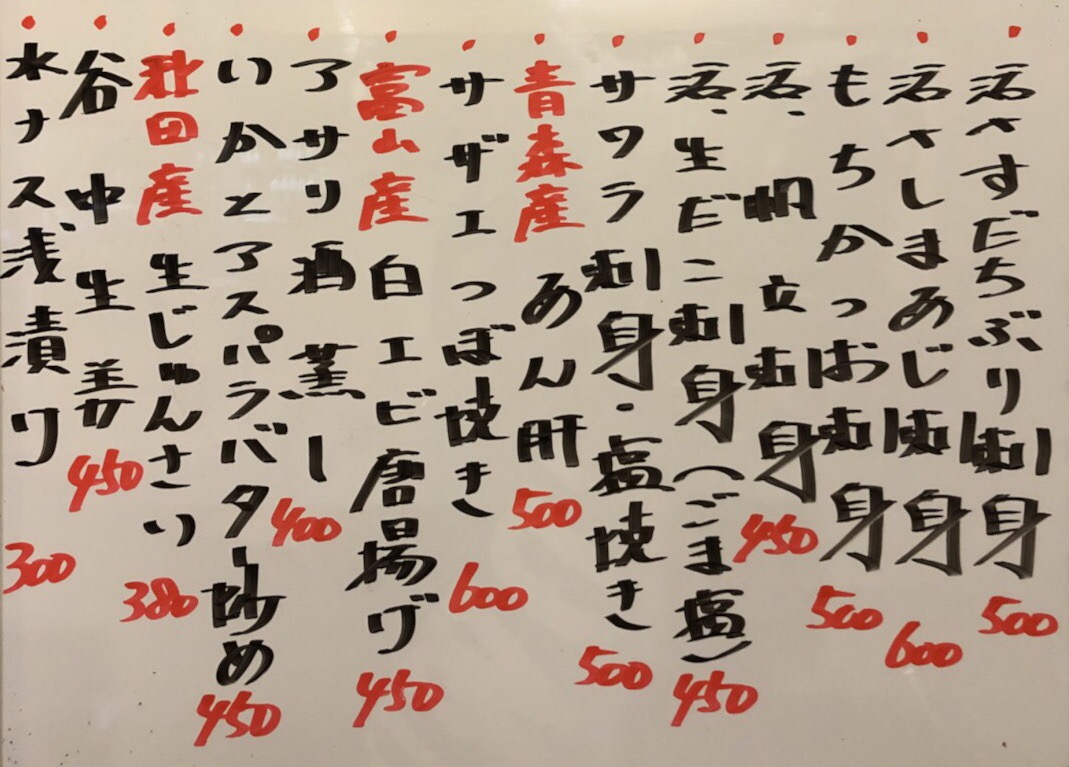 活〆すだちぶり刺身 500
活〆しまあじ刺身 600
もちかつお刺身 500
活〆帆立刺身 450
活〆生だこ刺身(ごま塩) 450
サワラ刺身・塩焼き 500
青森産 あん肝 500
サザエつぼ焼き 600
富山産 白エビ唐揚げ 450
アサリ酒蒸し 400
いかとアスパラバター炒め 450
秋田産 生じゅんさい 380
谷中生姜 450
水ナス浅漬り 300